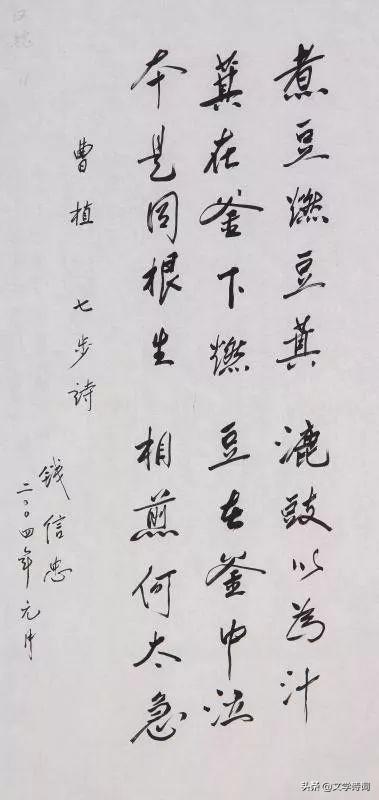 煮豆燃豆萁 漉豉以為汁
萁在釜下燃 豆在釜中泣
本是同根生 相煎何太急
曹植 七步詩
钱信忠
二〇〇四年元月
头条@文学诗阅